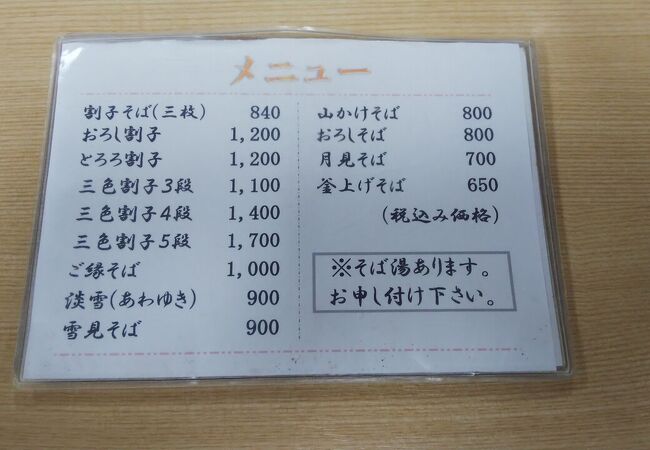 メニュー
割子そば(三枚) 840
おろし割子 1,200
とろろ割子 1,200
三色割子3段 1,100
三色割子4段 1,400
三色割子5段 1,700
ご縁そば 1,000
淡雪(あわゆき) 900
雪見そば 900
山かけそば 800
おろしそば 800
月見そば 700
釜上げそば 650
(税込み価格)
※そば湯あります。
お申し付け下さい。